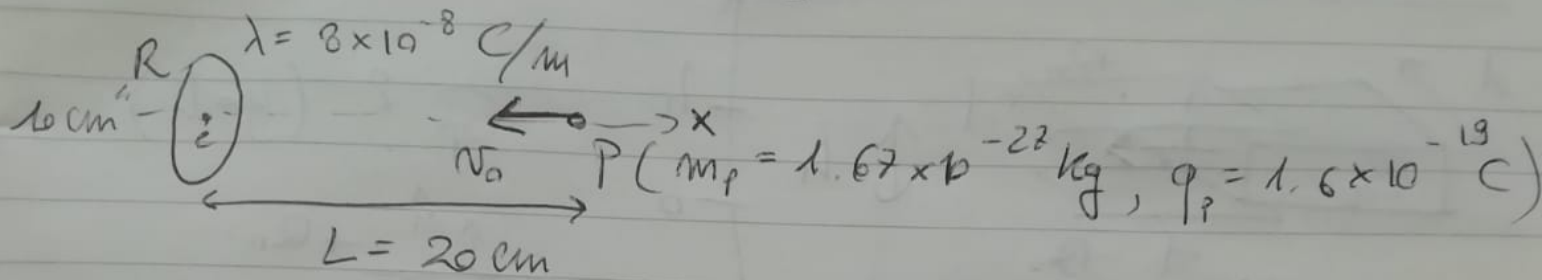 λ = 8×10⁻⁸ C/m
R
10 cm
c
v₀ P (m_p = 1.67×10⁻²⁷ kg, q_p = 1.6×10⁻¹⁹ C)
x
L = 20 cm